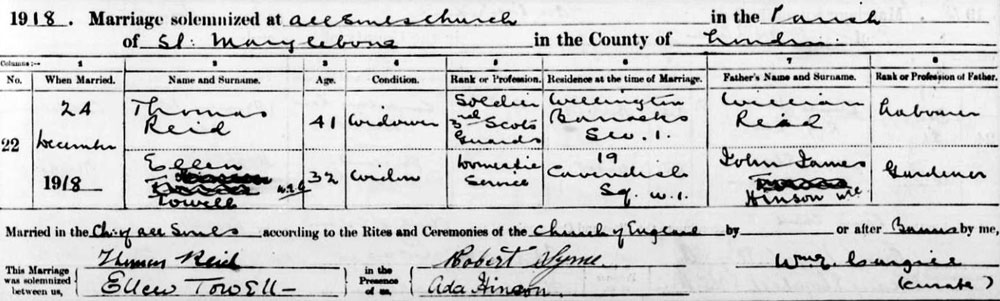 1918. Marriage solemnized at All Souls Church in the Parish
of St. Marylebone in the County of London
Columns:— 1 2 3 4 5 6 7 8
No. When Married. Name and Surname. Age. Condition. Rank or Profession. Residence at the time of Marriage. Father's Name and Surname. Rank or Profession of Father.
22
24
December
1918
Thomas
Reid
41
Widower
Soldier
3rd Scots
Guards
Wellington
Barracks
S.W.1.
William
Reid
Labourer
Ellen
Towell
32
Widow
Domestic
Service
19
Cavendish
Sq. W.1.
John James
Hinson
Gardener
Married in the Ch: of All Souls according to the Rites and Ceremonies of the Church of England by or after Banns by me,
This Marriage was solemnized between us,
Thomas Reid
Ellen Towell
in the Presence of us,
Robert Syme
Ada Hinson
(Curate)